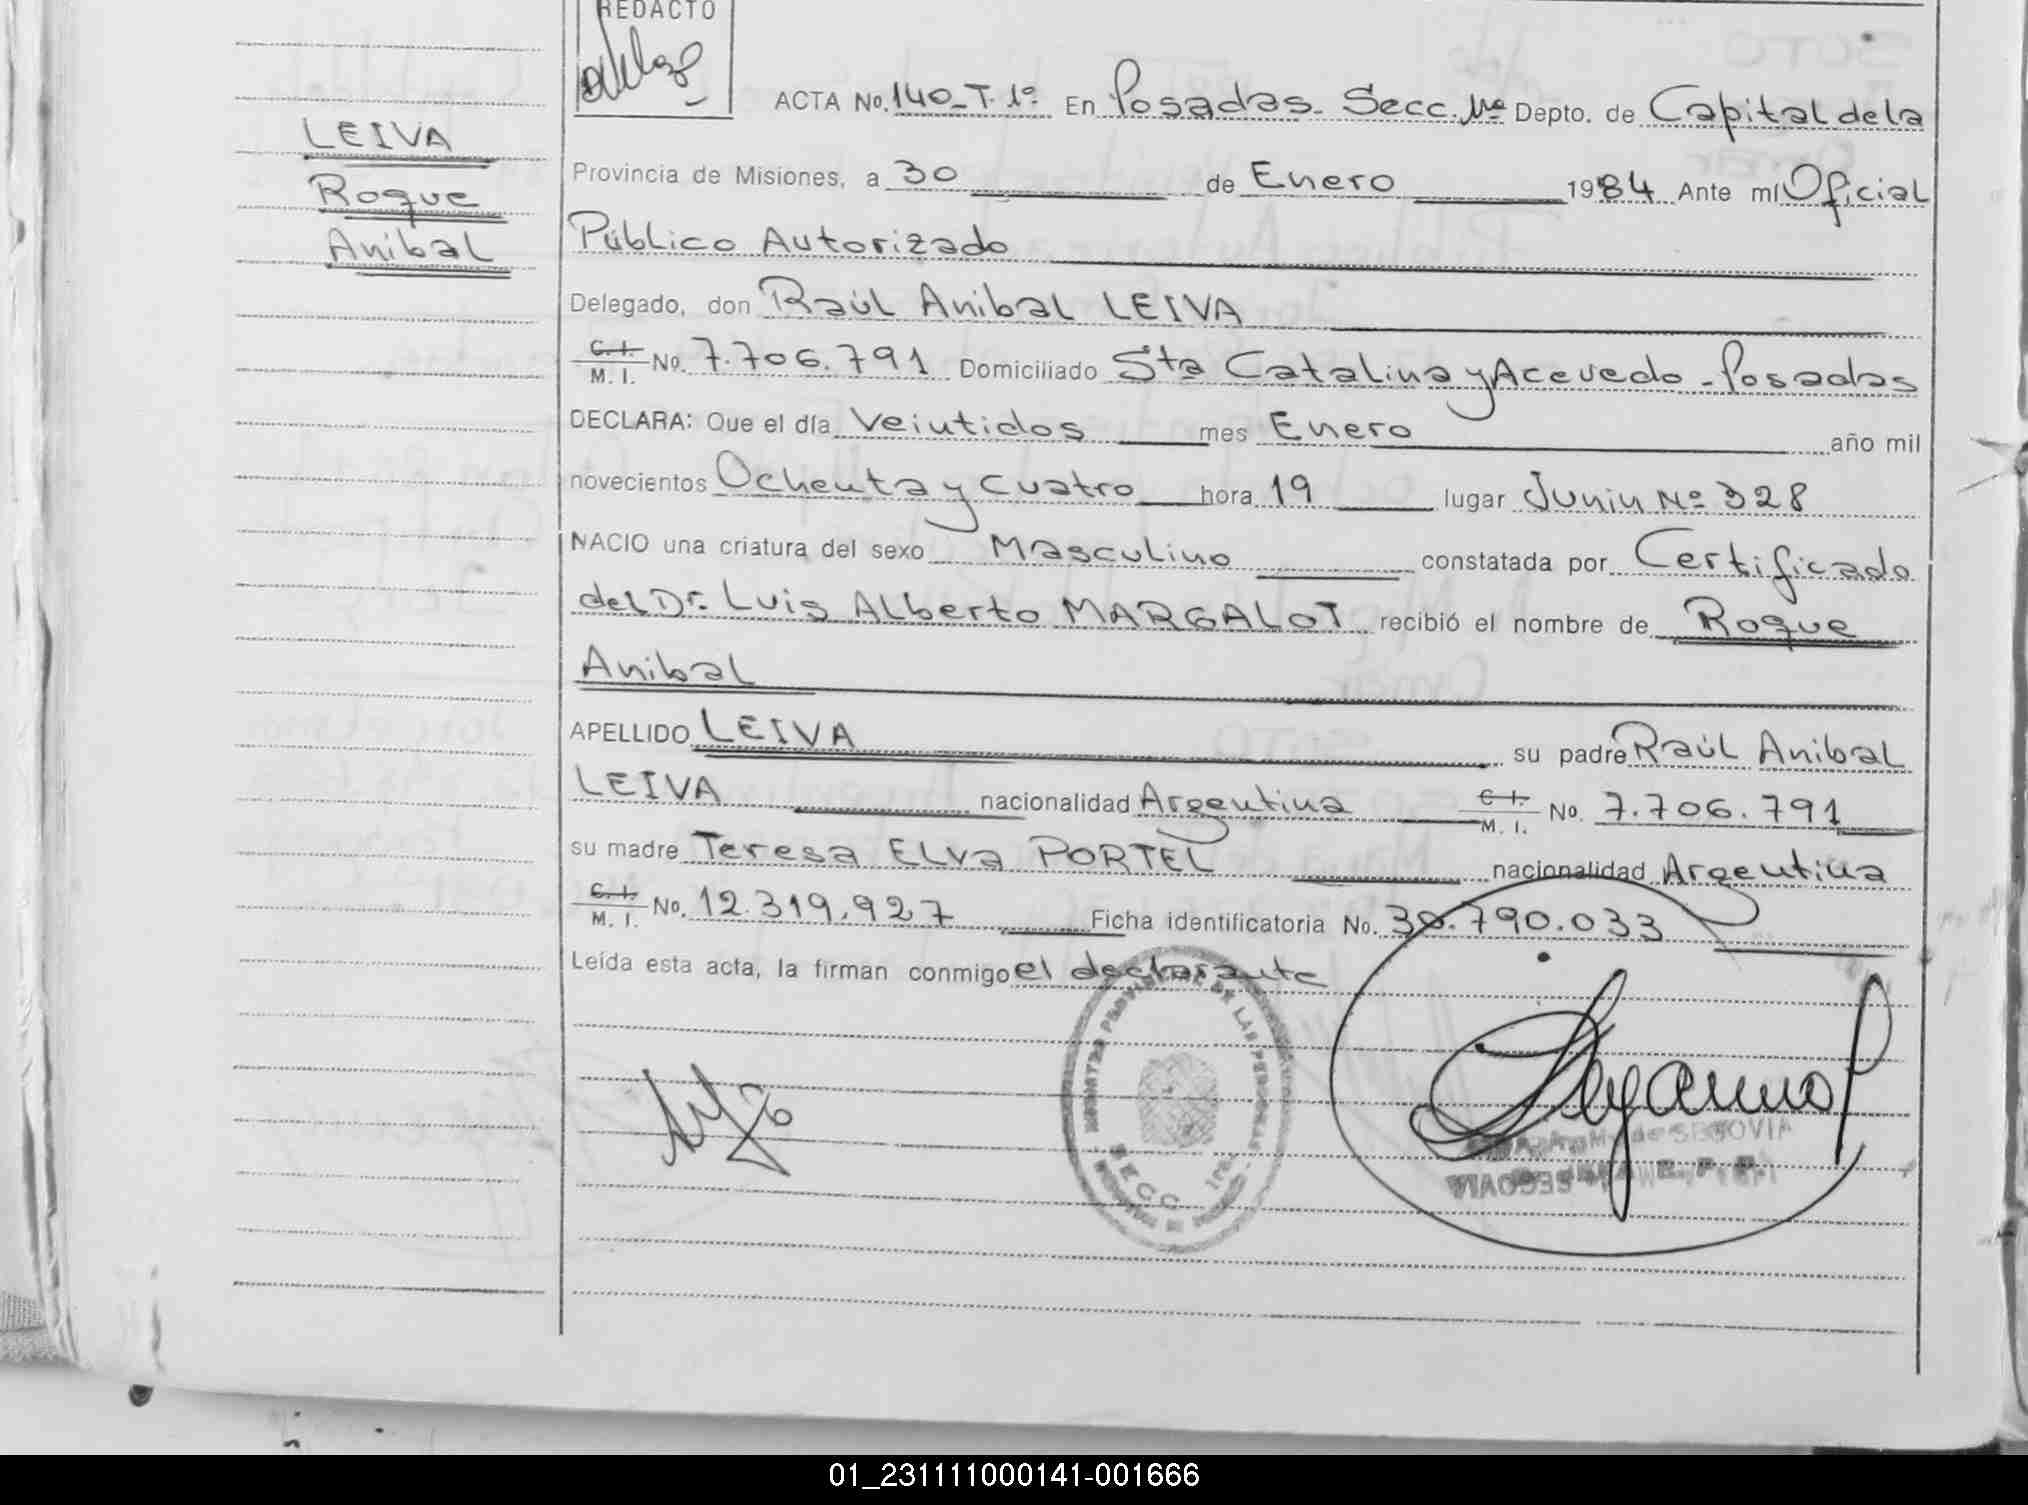 REDACTO
LEIVA
Roque
Anibal
ACTA No. 140_T.1º. En Posadas. Secc. 1ra Depto. de Capital de la
Provincia de Misiones, a 30 de Enero 1984 Ante mí Oficial
Público Autorizado
Delegado, don Raúl Anibal LEIVA
C. I. M. I. No. 7.706.791 Domiciliado Sta Catalina y Acevedo - Posadas
DECLARA: Que el día Veintidos mes Enero año mil
novecientos Ochenta y cuatro hora 19 lugar Junin Nº 328
NACIO una criatura del sexo Masculino constatada por Certificado
del Dr. Luis Alberto MARGALOT recibió el nombre de Roque
Anibal
APELLIDO LEIVA su padre Raúl Anibal
LEIVA nacionalidad Argentina C. I. M. I. No. 7.706.791
su madre Teresa Elva PORTEL nacionalidad Argentina
C. I. M. I. No. 12.319.927 Ficha identificatoria No. 30.790.033
Leída esta acta, la firman conmigo el declarante
PROVINCIAL DE LAS PERSONAS
SECC. 1ra.
de SEGOVIA
01_231111000141-001666